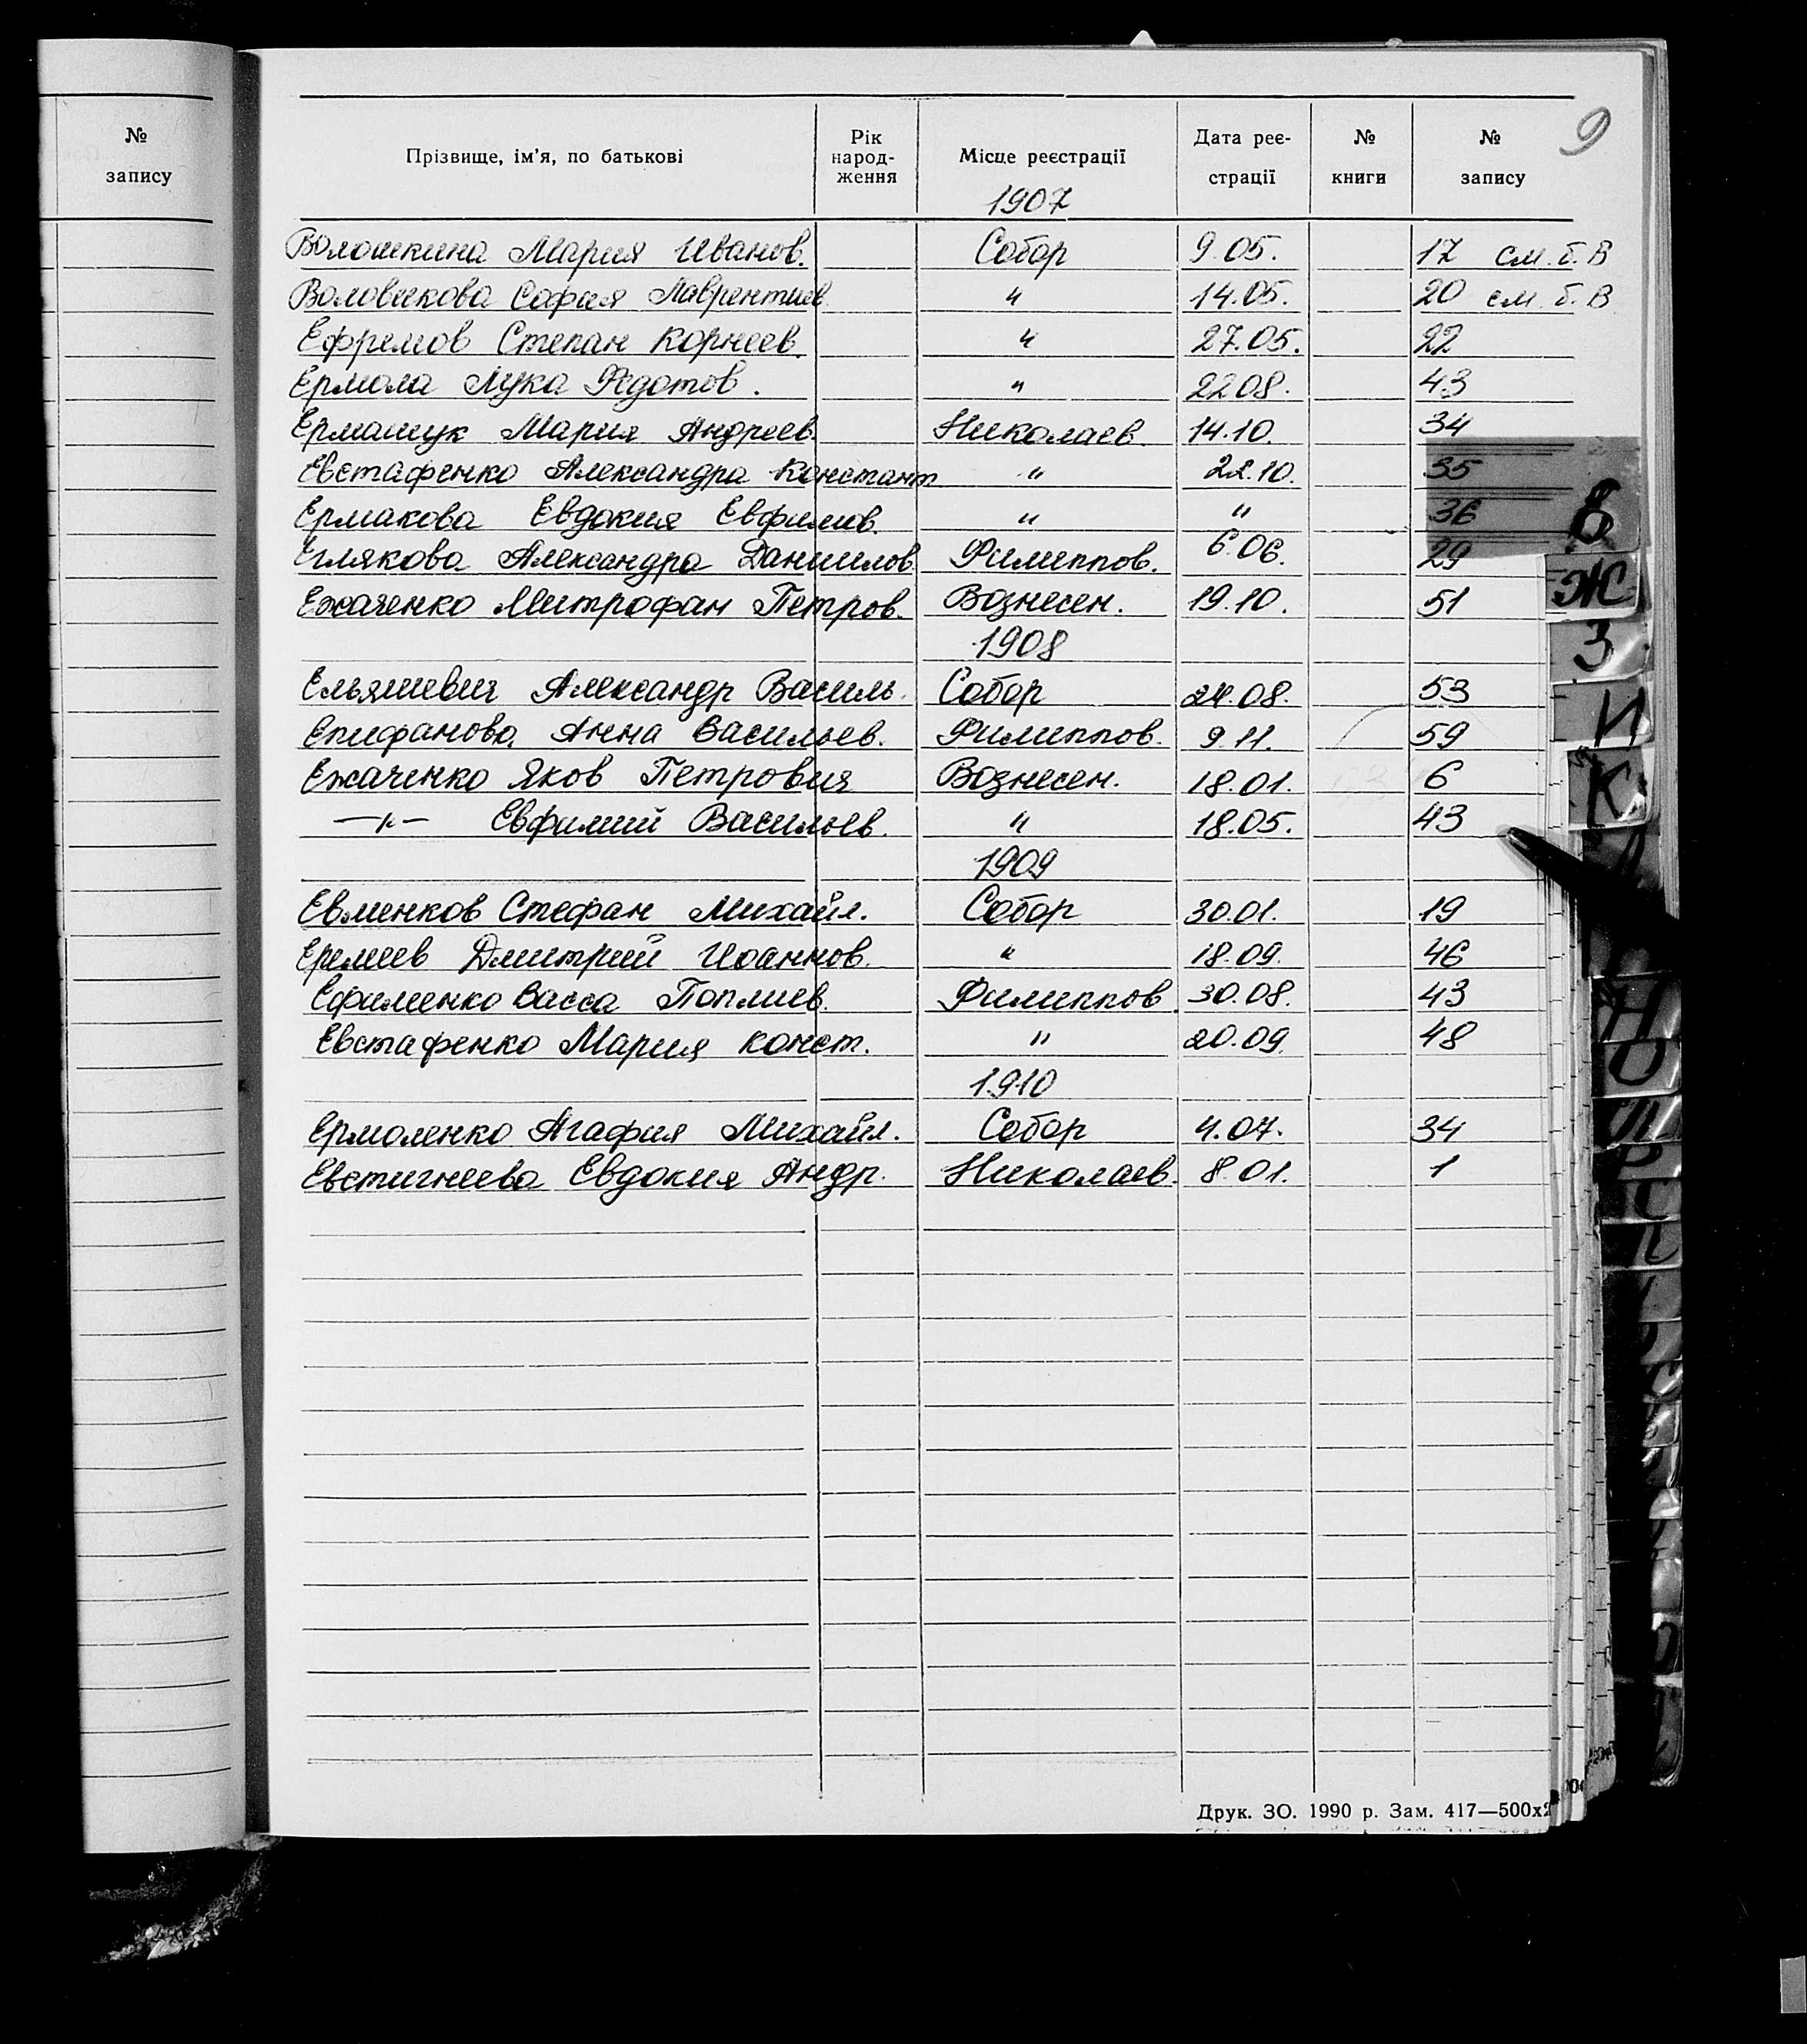 №
запису
9
Прізвище, ім'я, по батькові Рік народ-ження Місце реєстрації Дата реє-страції № книги № запису
1907
Волошкина Мария Иванов. Собор 9.05. 17 см. б. В
Воловикова София Лаврентиев. " 14.05. 20 см. б. В
Ефремов Степан Корнеев. " 27.05. 22
Ермола Лука Федотов. " 22 08. 43
Ермащук Мария Андреев. Николаев. 14.10. 34
Евстафенко Александра Констант. " 22.10. 35
Ермакова Евдокия Евфимов. " " 36
Александра Даниилов. Филиппов. 6.06. 29
Ежаченко Митрофан Петров. Вознесен. 19.10. 51
1908
Ельяшевич Александр Василь. Собор 24.08. 53
Епифанова Анна Васильев. Филиппов. 9.11. 59
Ежаченко Яков Петрович Вознесен. 18.01. 6
—"— Евфимий Васильев. " 18.05. 43
1909
Евменков Стефан Михайл. Собор 30.01. 19
Еремеев Дмитрий Иоаннов. " 18.09. 46
Ефименко Васса Филиппов. 30.08. 43
Евстафенко Мария Конст. " 20.09. 48
1910
Ермоленко Агафия Михайл. Собор 4.07. 34
Евстигнеева Евдокия Андр. Николаев. 8.01. 1
Ж
З
И
К
Н
О
Друк. ЗО. 1990 р. Зам. 417—500х2